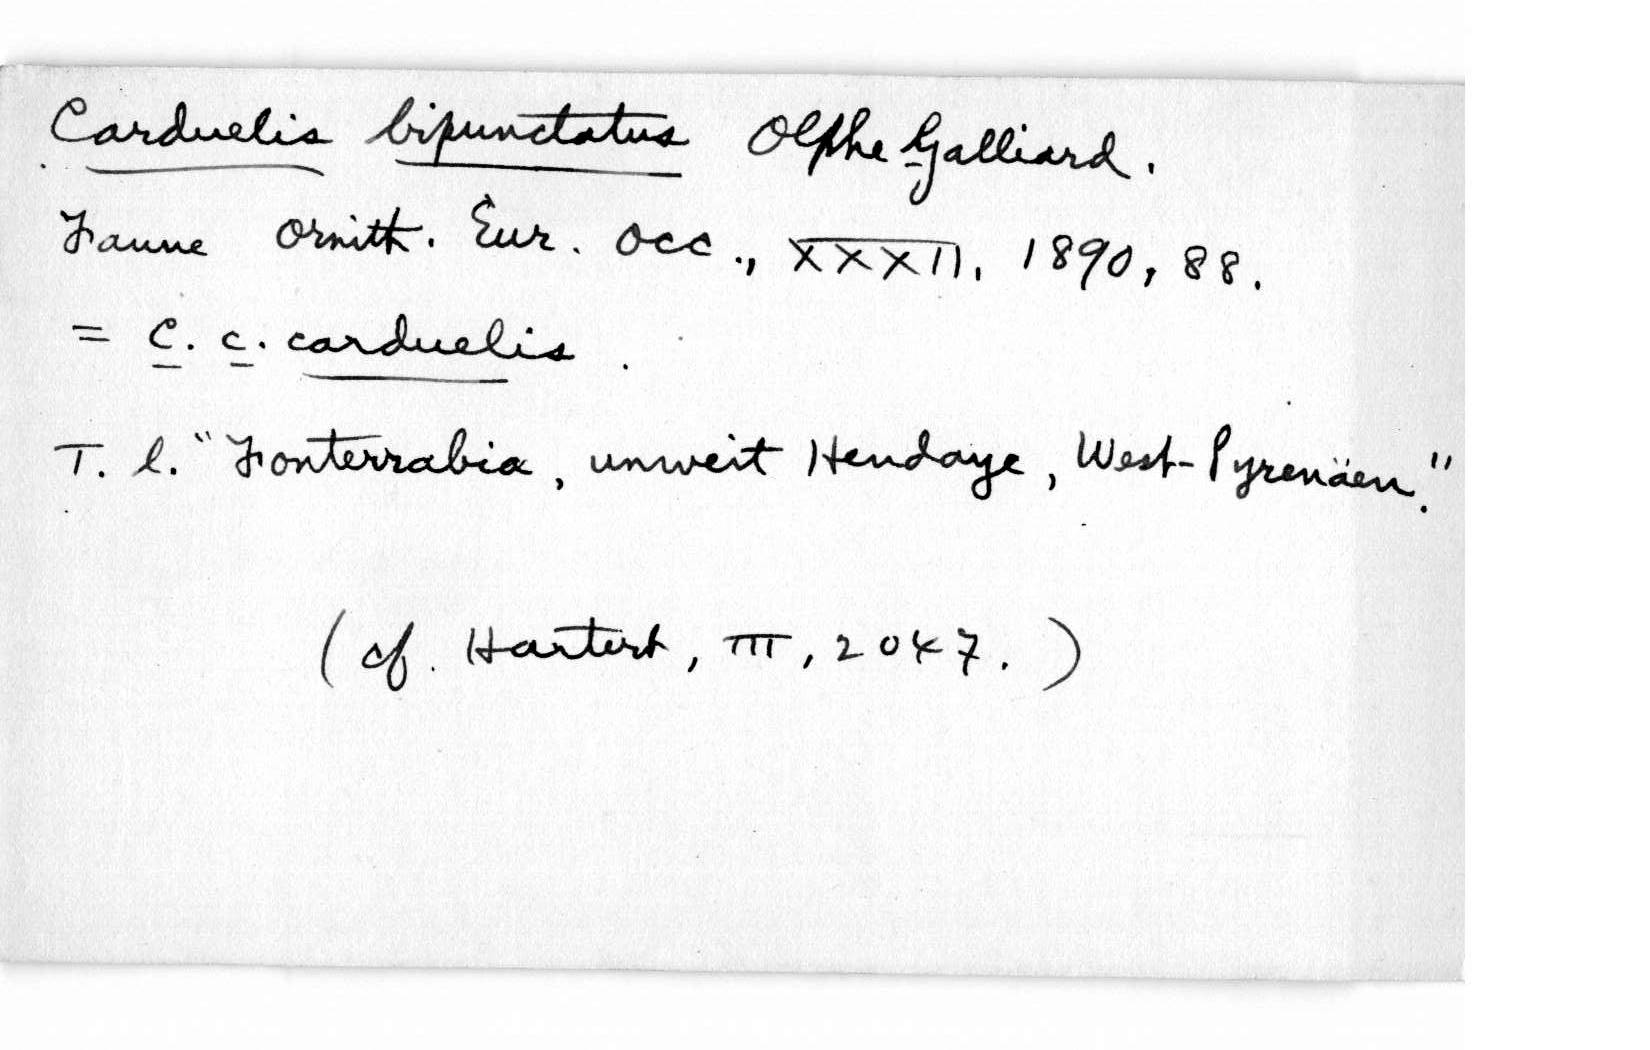 Carduelis bipunctatus Olphe Galliard.
Faune Ornith. Eur. Occ., XXXII, 1890, 88.
= C. c. carduelis.
T. l. "Fonterrabia, unweit Hendaye, West-Pyrenäen."
(cf. Hartert, III, 2047.)